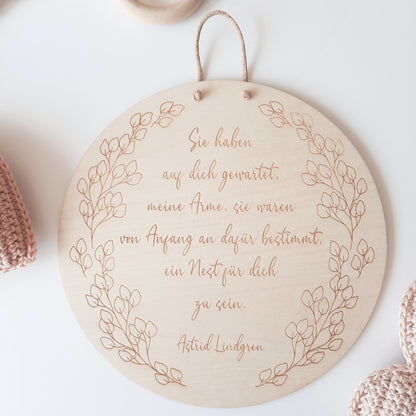 Sie haben
auf dich gewartet,
meine Arme, sie waren
von Anfang an dafür bestimmt,
ein Nest für dich
zu sein.
Astrid Lindgren